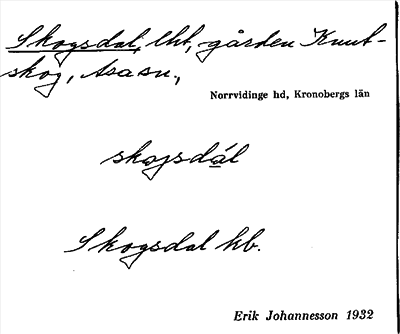 Skogsdal, lht, gården Knut-
skog, Asa sn.,
Norrvidinge hd, Kronobergs län
skojsdál
Skogsdal hb.
Erik Johannesson 1932